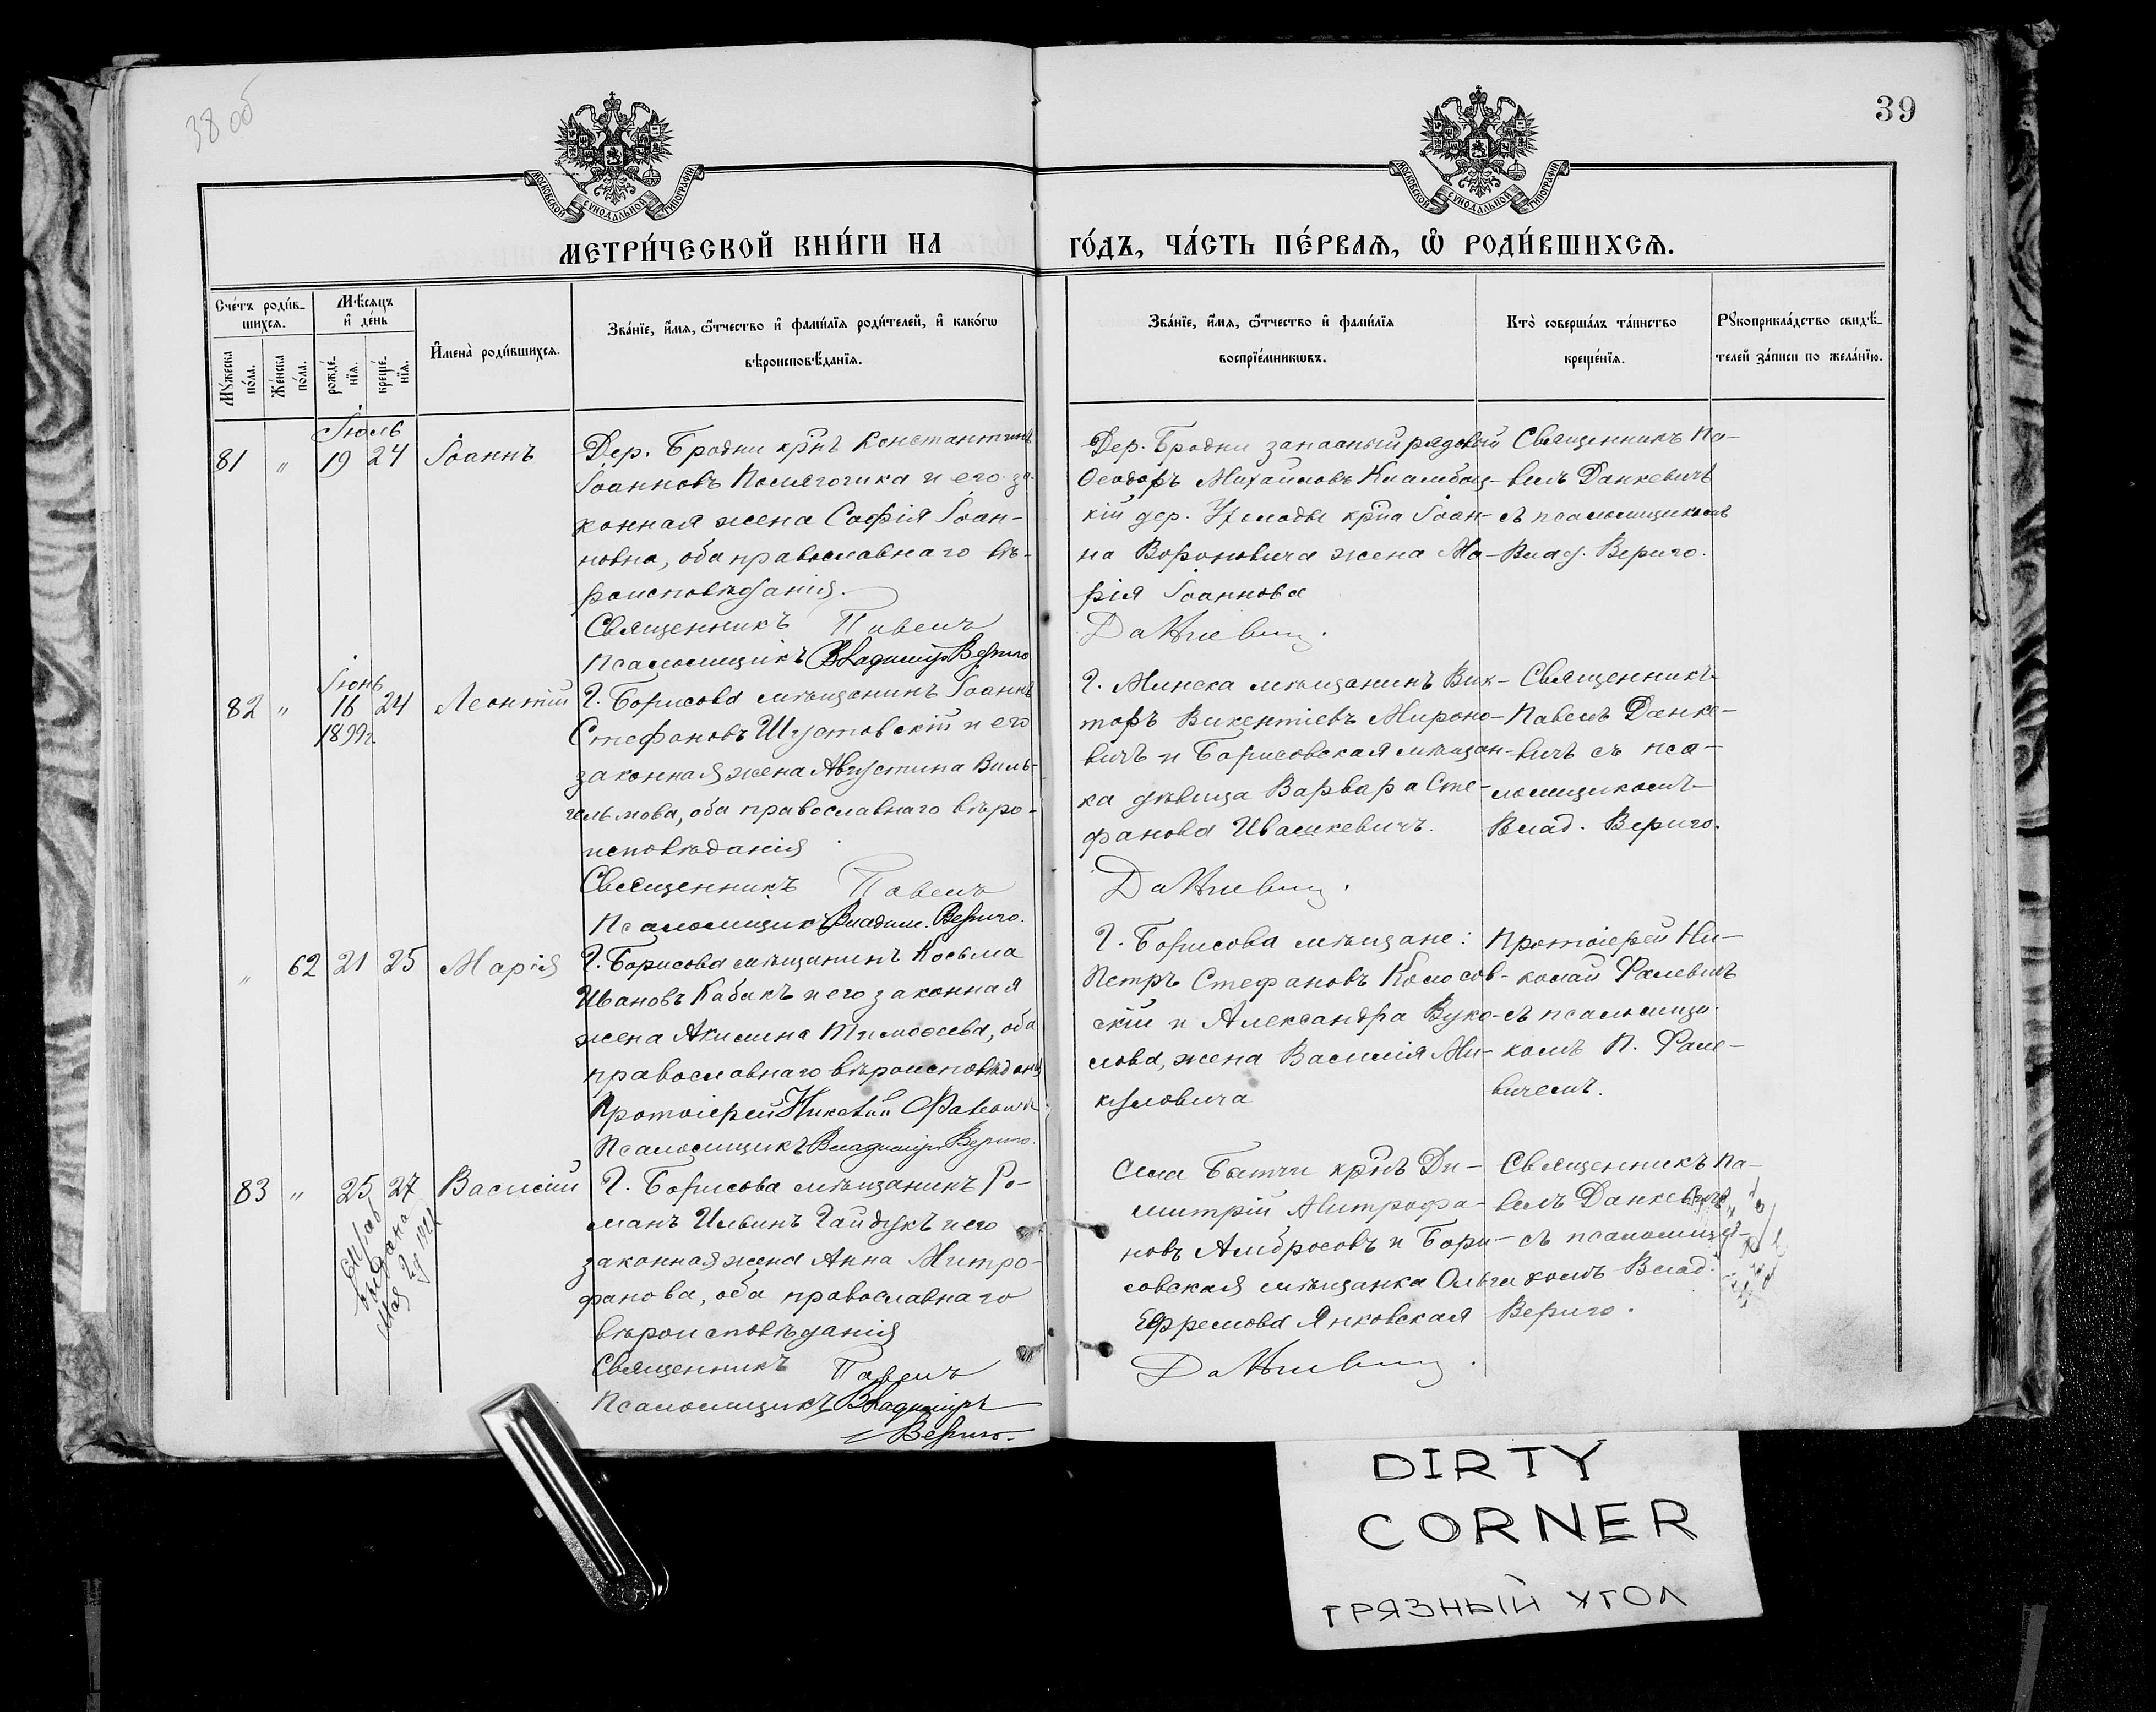 38 об
39
МОСКОВСКОЙ СУНОДАЛЬНОЙ ТИПОГРАФІИ
МОСКОВСКОЙ СУНОДАЛЬНОЙ ТИПОГРАФІИ
МЕТРИ́ЧЕСКОЙ КНИ́ГИ НА
ГО́ДЪ, ЧА́СТЬ ПЕ́РВАѦ, Ѡ РОДИ́ВШИХСѦ.
Сче́тъ роди́в-
шихсѧ.
Мѣ́сѧцъ
и҆ де́нь
Мꙋ́жеска
по́ла.
Же́нска
по́ла.
рожде́-
нїѧ.
креще́-
нїѧ.
И҆мена̀ роди́вшихсѧ.
Зва́нїе, и҆́мѧ, ѻ҆́тчество и҆ фами́лїѧ роди́телей, и҆ како́гѡ
вѣроисповѣ́данїѧ.
Зва́нїе, и҆́мѧ, ѻ҆́тчество и҆ фами́лїѧ
воспрїе́мникѡвъ.
Кто̀ соверша́лъ та́инство
креще́нїѧ.
Рꙋкоприкла́дство свидѣ́-
телей за́писи по жела́нїю.
Іюль
81 " 19 24 Іоаннъ
Дер. Бродни крнъ Константинъ
Іоанновъ и его за-
конная жена Софія Іоан-
новна, оба православнаго вѣ-
роисповѣданія.
Священникъ Павелъ
Псаломщикъ Владиміръ Вериго
Дер. Бродни запасный рядовый
Ѳеодоръ Михайловъ
кій дер. крна Іоан-
на Вороновича жена Ма-
рія Іоаннова
Данкевичъ.
Священникъ Па-
велъ Данкевичъ
съ псаломщикомъ
Влад. Вериго.
Іюнь
82 " 16 24 Леонтій
1899г.
Г. Борисова мѣщанинъ Іоаннъ
Стефановъ Шустовскій и его
законная жена Августина Виль-
гельмова, оба православнаго вѣро-
исповѣданія
Священникъ Павелъ
Псаломщикъ Владим. Вериго.
Г. Минска мѣщанинъ Вик-
торъ Викентіевъ Мироно-
вичъ и Борисовская мѣщан-
ка дѣвица Варвара Сте-
фанова Ивашкевичъ.
Данкевичъ.
Священникъ
Павелъ Данке-
вичъ съ пса-
ломщикомъ
Влад. Вериго.
" 62 21 25 Марія
Г. Борисова мѣщанинъ Косьма
Ивановъ Кабакъ и его законная
жена Акилина Тимоѳеева, оба
православнаго вѣроисповѣданія
Протоіерей Николай Фалевичъ
Псаломщикъ Владиміръ Вериго.
Г. Борисова мѣщане:
Петръ Стефановъ Колосов-
скій и Александра Вуко-
лова, жена Василія Ми-
куловича
Протоіерей Ни-
колай Фалевичъ
съ псаломщи-
комъ П. Фале-
вичемъ.
83 " 25 27 Василій
Справ
выдана
мая
Г. Борисова мѣщанинъ Ро-
манъ Ильинъ Гайдукъ и его
законная жена Анна Митро-
фанова, оба православнаго
вѣроисповѣданія
Священникъ Павелъ
Псаломщикъ Владиміръ
Вериго.
села Бытчи крнъ Ди-
митрій Митрофа-
новъ Амбросовъ и Бори-
совская мѣщанка Ольга
Ефремова Янковская
Данкевичъ.
Священникъ Па-
велъ Данкевичъ
съ псаломщи-
комъ Влад.
Вериго.
DIRTY
CORNER
ГРЯЗНЫЙ УГОЛ